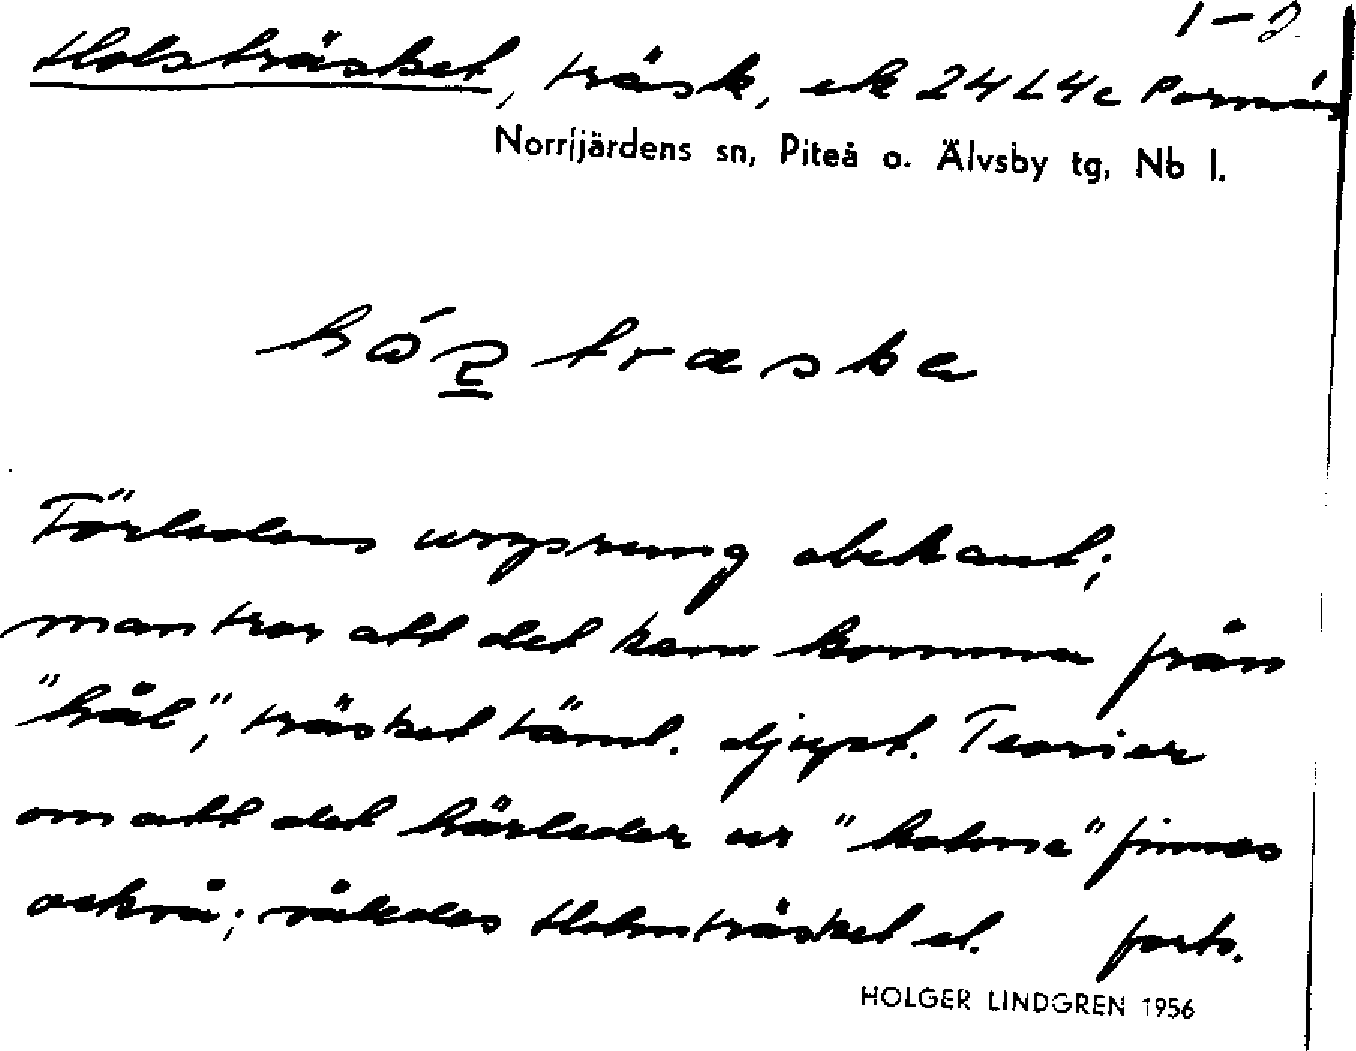 1-2.
Holsträsket, träsk, ek 24L4c Pornäs
Norrfjärdens sn, Piteå o. Älvsby tg, Nb l.
träske
Förledens ursprung obekant;
man tror att det kan komma från
"hål", träsket täml. djupt. Teorier
om att det härleder ur "holme" finnes
också; således Holmträsket el. forts.
HOLGER LINDGREN 1956